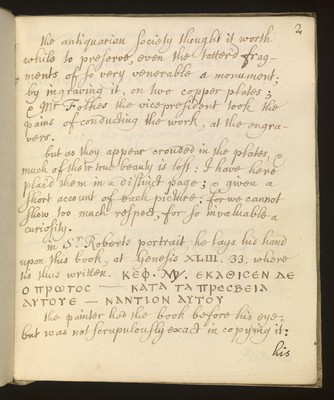 2
the antiquarian Society thought it worth
while to preserve, even the tatter'd frag-
ments of so very venerable a monument;
by ingraving it, on two copper plates;
& Mr Folkes the vicepresident took the
pains of conducting the work, at the engra-
vers.
but as they appear crouded in the plates, &
much of their true beauty is lost; I have here
plac'd them in a distinct page; & given a
short account of each picture; for we cannot
shew too much respect, for so invaluable a
curiosity.
in Sr. Roberts portrait, he lays his hand
upon this book, at Genesis XLIII. 33. where
tis thus written. ΚΕΦ. ΕΚΑΘΙCΕΝ ΔΕ
Ο ΠΡΩΤΟC — ΚΑΤΑ ΤΑ ΠΡΕCΒΕΙΑ
ΑΥΤΟΥΕ — ΝΑΝΤΙΟΝ ΑΥΤΟΥ
the painter had the book before his eye,
but was not scrupulously exact in copying it:
his